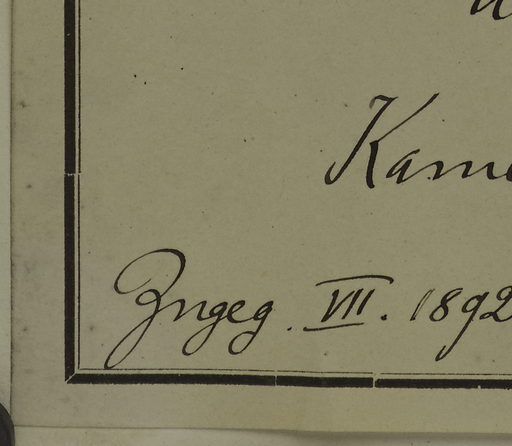 Kame
Zngeg. VII. 1892